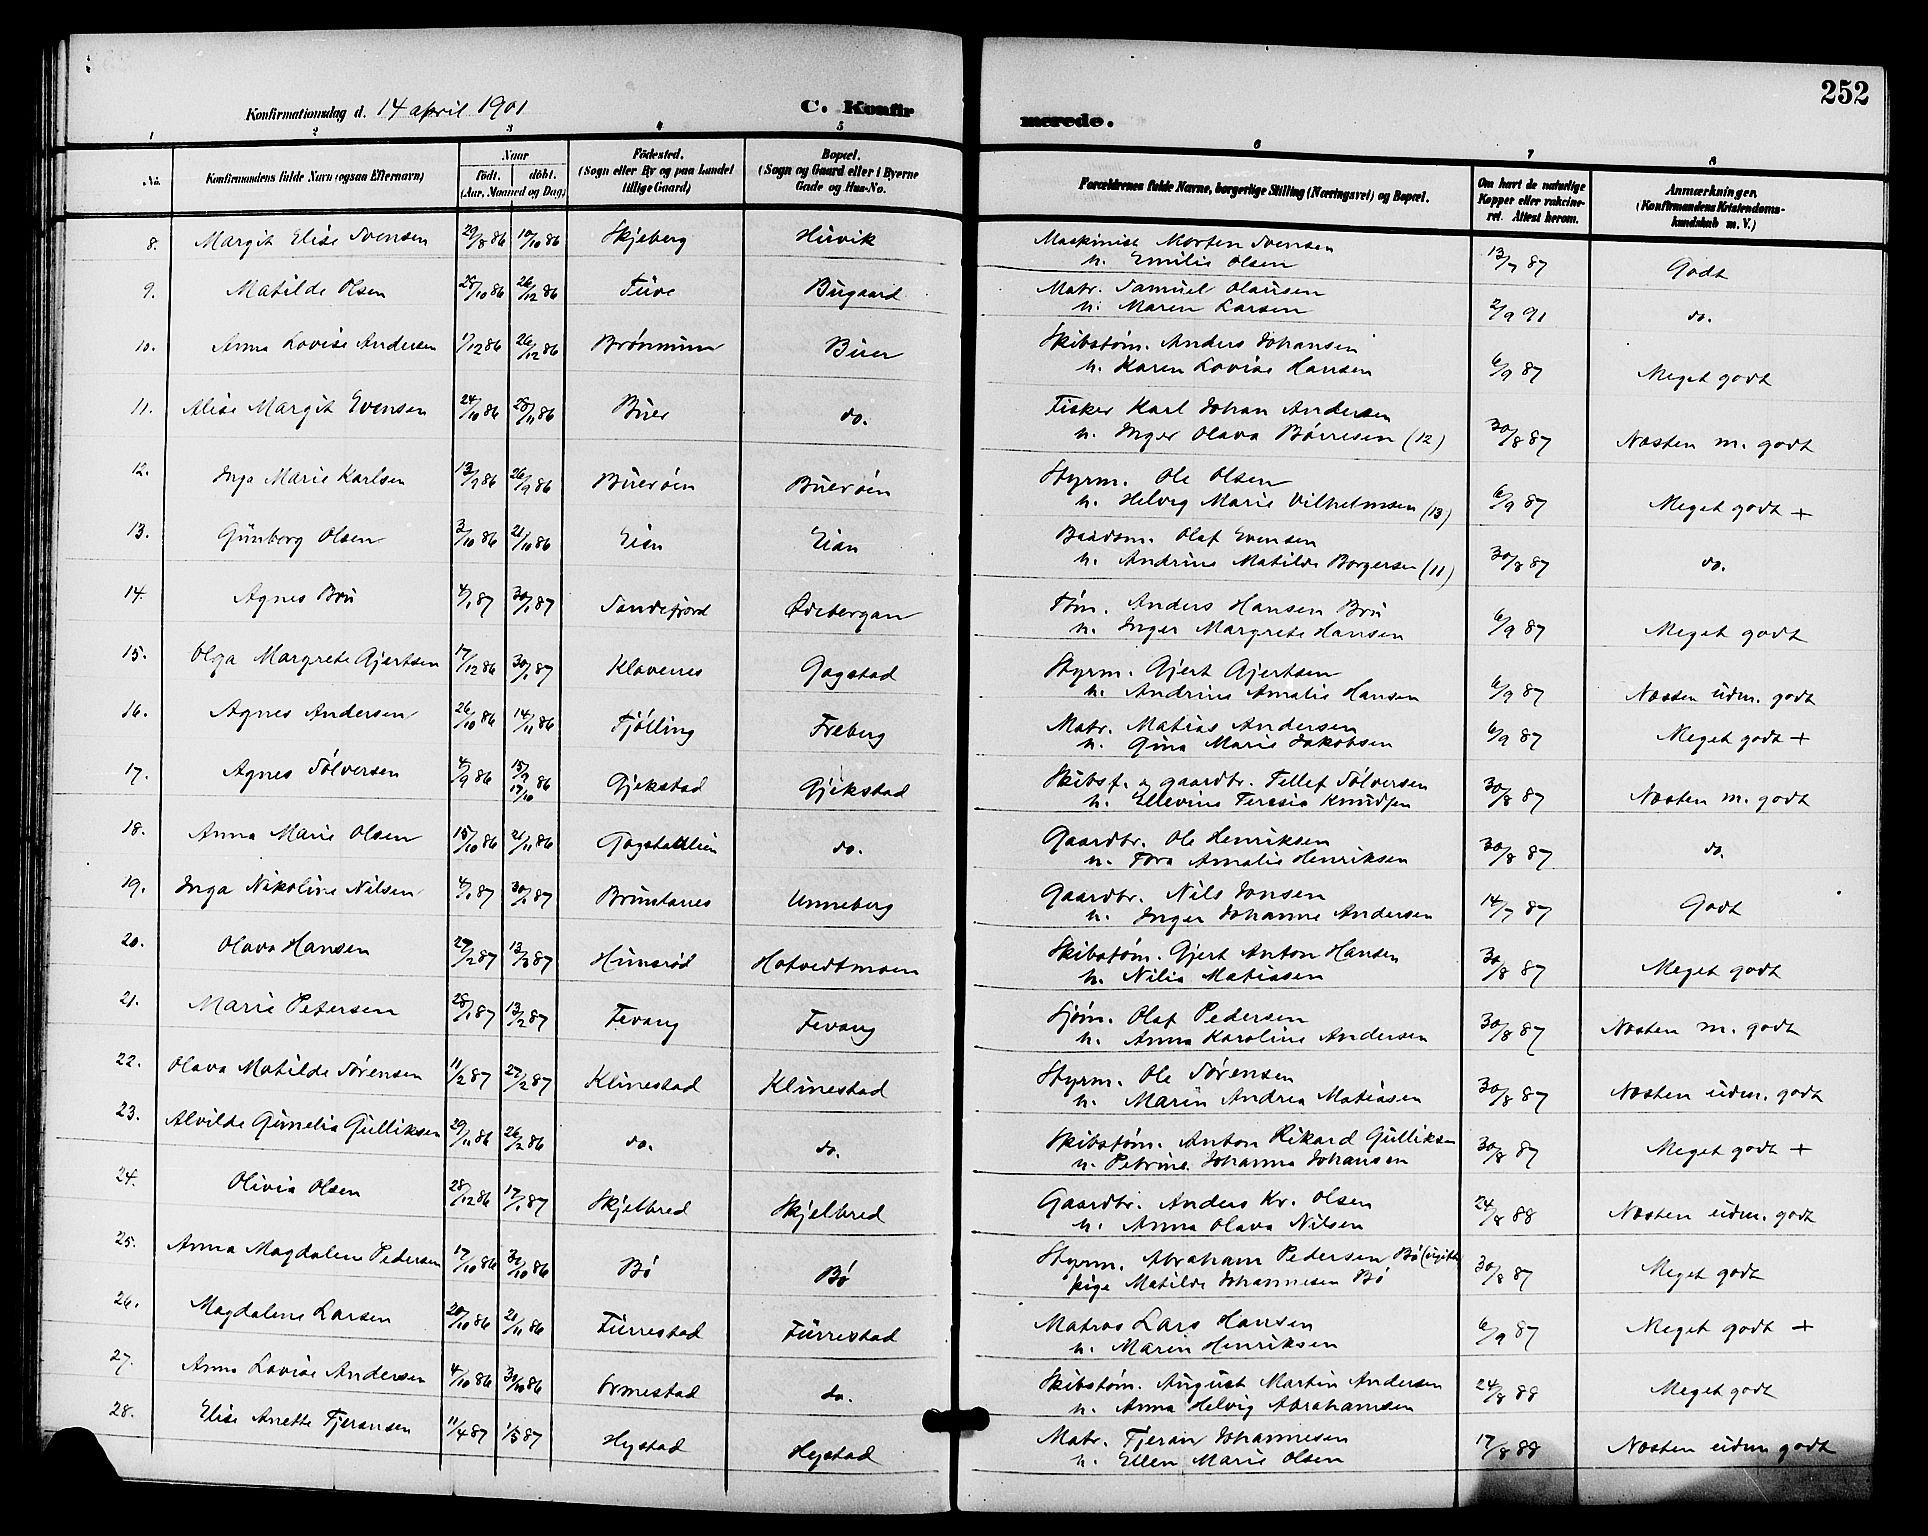 252
Konfirmationsdag d. 14 april 1901 C. Konfirmerede.
1 2 3 4 5 6 7 8
No. Konfirmandens fulde Navn (ogsaa Efternavn) Naar födt. döbt. (Aar, Maaned og Dag) Födested. (Sogn eller By og paa Landet tillige Gaard) Bopæl. (Sogn og Gaard eller i Byerne Gade og Hus-No. Forældrenes fulde Navne, borgerlige Stilling (Næringsvei) og Bopæl. Om havt de naturlige Kopper eller vakcineret. Attest herom. Anmærkninger. (Konfirmandens Kristendomskundskab m. V.)
8. Margit Elise Svensen 29/8 86 10/10 86 Skjeberg Hüvik Maskinist Morten Svensen
u. Emilie Olsen 13/7 87 Godt
9. Matilde Olsen 28/10 86 26/12 86 Tüve Bugaard Matr. Samuel Olausen
u. Maren Larsen 2/9 91 do.
10. Anna Lovise Andersen 1/12 86 26/12 86 Brønnum Buer Skibstøm. Anders Johansen
u. Karen Lovise Hansen 6/9 87 Meget godt
11. Alise Margit Evensen 24/10 86 28/11 86 Buer do. Fisker Karl Johan Andersen
u. Inger Olava Børresen (12) 30/8 87 Næsten m. godt
12. Inga Marie Karlsen 13/9 86 26/9 86 Buerøen Buerøen Styrm. Ole Olsen
u. Helvig Marie Vilhelmsen (13) 6/9 87 Meget godt +
13. Günborg Olsen 3/10 86 21/10 86 Eian Eian Baadsm. Olaf Evensen
u. Andrine Matilde Borgersen (11) 30/8 87 do.
14. Agnes Brü 4/1 87 30/1 87 Sandefjord Ødebergan Tøm. Anders Hansen Brü
u. Inger Margrete Hansen 6/9 87 Meget godt
15. Olga Margrete Gjertsen 17/12 86 30/1 87 Klavenes Gogstad Styrm. Gjert Gjertsen
u. Andrine Amalie Hansen 6/9 87 Næsten üdm. godt
16. Agnes Andersen 26/10 86 14/11 86 Tjølling Freberg Matr. Matias Andersen
u. Gina Marie Jakobsen 6/9 87 Meget godt +
17. Agnes Sølversen 4/9 86 15/9 86 17/10 Gjekstad Gjekstad Skibsf. og gaardbr. Tellef Sølversen
u. Ellevine Teresia Knudsen 30/8 87 Næsten m. godt
18. Anna Marie Olsen 15/10 86 21/11 86 Gogstadlien do. Gaardbr. Ole Henriksen
u. Tora Amalie Henriksen 30/8 87 do.
19. Inga Nikoline Nilsen 4/1 87 30/1 87 Brunstanes Unneberg Gaardbr. Nils Jonsen
u. Inger Johanne Andersen 14/7 87 Godt
20. Olava Hansen 27/2 87 13/3 87 Himsrød Hotvedtmoen Skibstøm. Gjert Anton Hansen
u. Nilia Matiasen 30/8 87 Meget godt
21. Marie Petersen 28/1 87 13/2 87 Fevang Fevang Sjøm. Olaf Pedersen
u. Anna Karoline Andersen 30/8 87 Næsten m. godt
22. Olava Matilde Sørensen 11/2 87 27/2 87 Klinestad Klinestad Styrm. Ole Sørensen
u. Marin Andrea Matiasen 30/8 87 Næsten üdm. godt
23. Alvilde Gunelia Gülliksen 29/11 86 26/2 86 do. do. Skibstøm. Anton Rikard Gülliksen
u. Petrine Johanna Johansen 30/8 87 Meget godt +
24. Olivia Olsen 28/12 86 17/1 87 Skjelbred Skjelbred Gaardbr. Anders Kr. Olsen
u. Anna Olava Nilsen 24/8 88 Næsten üdm. godt
25. Anna Magdalene Pedersen 17/10 86 31/10 86 Bø Bø Styrm. Abraham Pedersen Bø (ugift
pige Matilde Johannesen Bø 30/8 87 Meget godt
26. Magdalene Larsen 20/10 86 21/11 86 Fürrestad Fürrestad Matros Lars Hansen
u. Marin Henriksen 6/9 87 Meget godt +
27. Anna Lovise Andersen 4/10 86 31/10 86 Ormestad do. Skibstøm. August Martin Andersen
u. Anna Helvig Abrahamsen 24/8 88 Meget godt
28. Elise Anette Tjeransen 11/4 87 1/5 87 Hystad Hystad Matr. Tjeran Johannesen
u. Ellen Marie Olsen 17/8 88 Næsten üdm godt